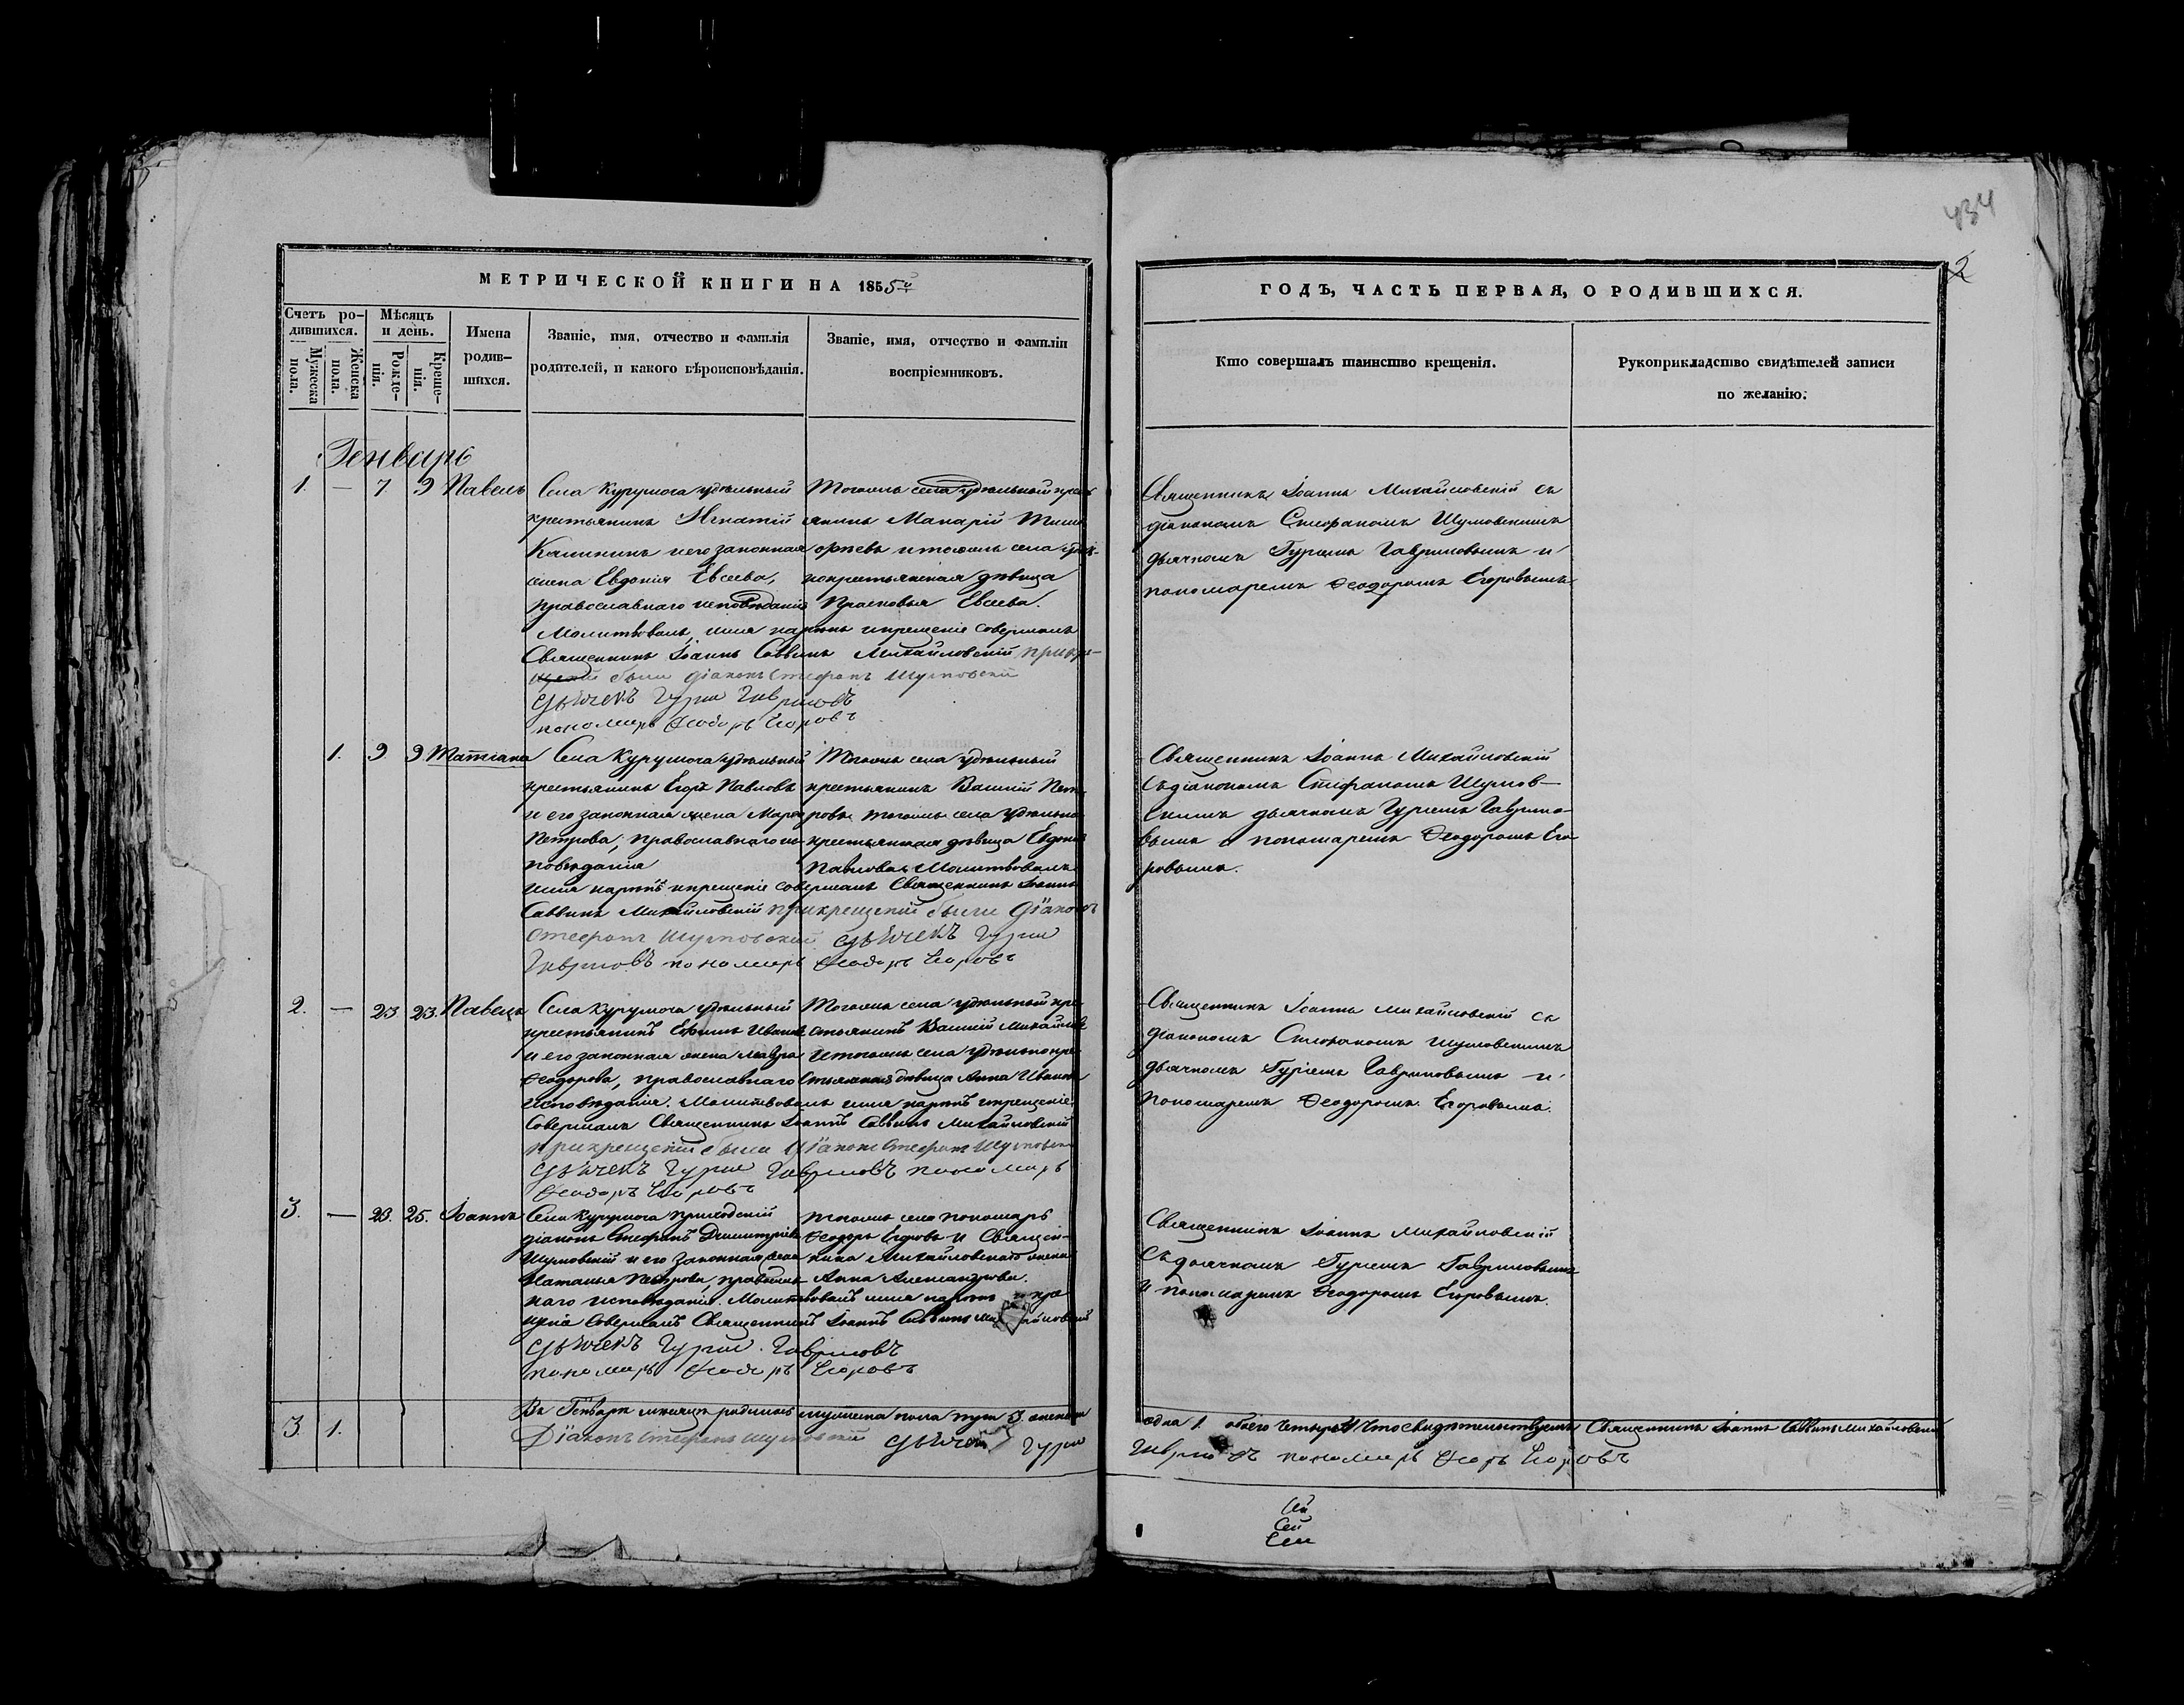 434
2
МЕТРИЧЕСКОЙ КНИГИ НА 1855й
Счетъ ро-
дившихся.
Мужеска
пола.
Женска
пола.
Мѣсяцъ
и день.
Рожде-
нія.
Креще-
нія.
Имена
родив-
шихся.
Званіе, имя, отчество и фамилія
родителей, и какого вѣроисповѣданія.
Званіе, имя, отчество и фамиліи
воспріемниковъ.
ГОДЪ, ЧАСТЬ ПЕРВАЯ, О РОДИВШИХСЯ.
Кто совершалъ таинство крещенія.
Рукоприкладство свидѣтелей записи
по желанію.
Генварь
1. — 7 9 Павелъ
Села Курумоча удѣльный
крестьянинъ Игнатій
Калининъ и его законная
жена Евдокія Евсеева,
православнаго исповѣданія
Тогожъ села удѣльный крест
янинъ Макарій Тимо
ѳеевъ и тогожъ села удѣль
нокрестьянская дѣвица
Прасковья Евсеева.
Молитвовалъ, имя нарекъ и крещеніе совершалъ
Священникъ Іоаннъ Саввинъ Михайловскій при кре-
щеніи были діаконъ Стефанъ Шумовскій
дьячекъ Гурій Гавриловъ
пономарь Ѳеодоръ Егоровъ
Священникъ Іоаннъ Михайловскій съ
діакономъ Стефаномъ Шумовскимъ
дьячкомъ Гуріемъ Гавриловымъ и
пономаремъ Ѳеодоромъ Егоровымъ
1. 9 9 Татіана
Села Курумоча удѣльный
крестьянинъ Егоръ Павловъ
и его законная жена Марѳа
Петрова, православнаго ис-
повѣданія
Тогожъ села удѣльный
крестьянинъ Василій Пет
ровъ тогожъ села удѣльно
крестьянская дѣвица Евдокія
Павлова Молитвовалъ
имя нарекъ и крещеніе совершалъ Священникъ Іоаннъ
Саввинъ Михайловскій при крещеніи были діаконъ
Стефанъ Шумовскій дьячекъ Гурій
Гавриловъ пономарь Ѳеодоръ Егоровъ
Священникъ Іоаннъ Михайловскій
съ діакономъ Стефаномъ Шумов-
скимъ дьячкомъ Гуріемъ Гаврило-
вымъ и пономаремъ Ѳеодоромъ Его
ровымъ.
2. — 23 23. Павелъ
Села Курумоча удѣльный
крестьянинъ Ефимъ Ивановъ
и его законная жена Мавра
Ѳеодорова, православнаго
исповѣданія.
Тогожъ села удѣльный кре
стьянинъ Василій Михайловъ
и тогожъ села удѣльнокре
стьянская дѣвица Анна Иванова
Молитвовалъ имя нарекъ и крещеніе
совершалъ Священникъ Іоаннъ Саввинъ Михайловскій
при крещеніи были діаконъ Стефанъ Шумовскій
дьячекъ Гурій Гавриловъ пономарь
Ѳеодоръ Егоровъ
Священникъ Іоаннъ Михайловскій съ
діакономъ Стефаномъ Шумовскимъ
дьячкомъ Гуріемъ Гавриловымъ и
пономаремъ Ѳеодоромъ Егоровымъ.
3. — 23. 25. Іоаннъ
Села Курумоча приходскій
діаконъ Стефанъ Димитріевъ
Шумовскій и его законная жена
Наталья Петрова, православ
наго исповѣданія.
Тогожъ села пономарь
Ѳеодоръ Егоровъ и Священ-
ника Михайловскаго жена
Анна Александрова.
Молитвовалъ имя нарекъ и кре
щеніе совершалъ Священникъ Іоаннъ Саввинъ Михайловскій
дьячекъ Гурій Гавриловъ
пономарь Ѳеодоръ Егоровъ
Священникъ Іоаннъ Михайловскій
съ дьячкомъ Гуріемъ Гавриловымъ
и пономаремъ Ѳеодоромъ Егоровымъ.
3. 1.
Въ Генварѣ мѣсяцѣ родилось мужеска пола три 3 женска
одна 1. обоего четыре 4 что свидѣтельствуемъ Священникъ Іоаннъ Саввинъ Михайловскій
Діаконъ Стефанъ Шумовскій дьячекъ Гурій
Гавриловъ пономарь Ѳеодоръ Егоровъ
Сей
Сей